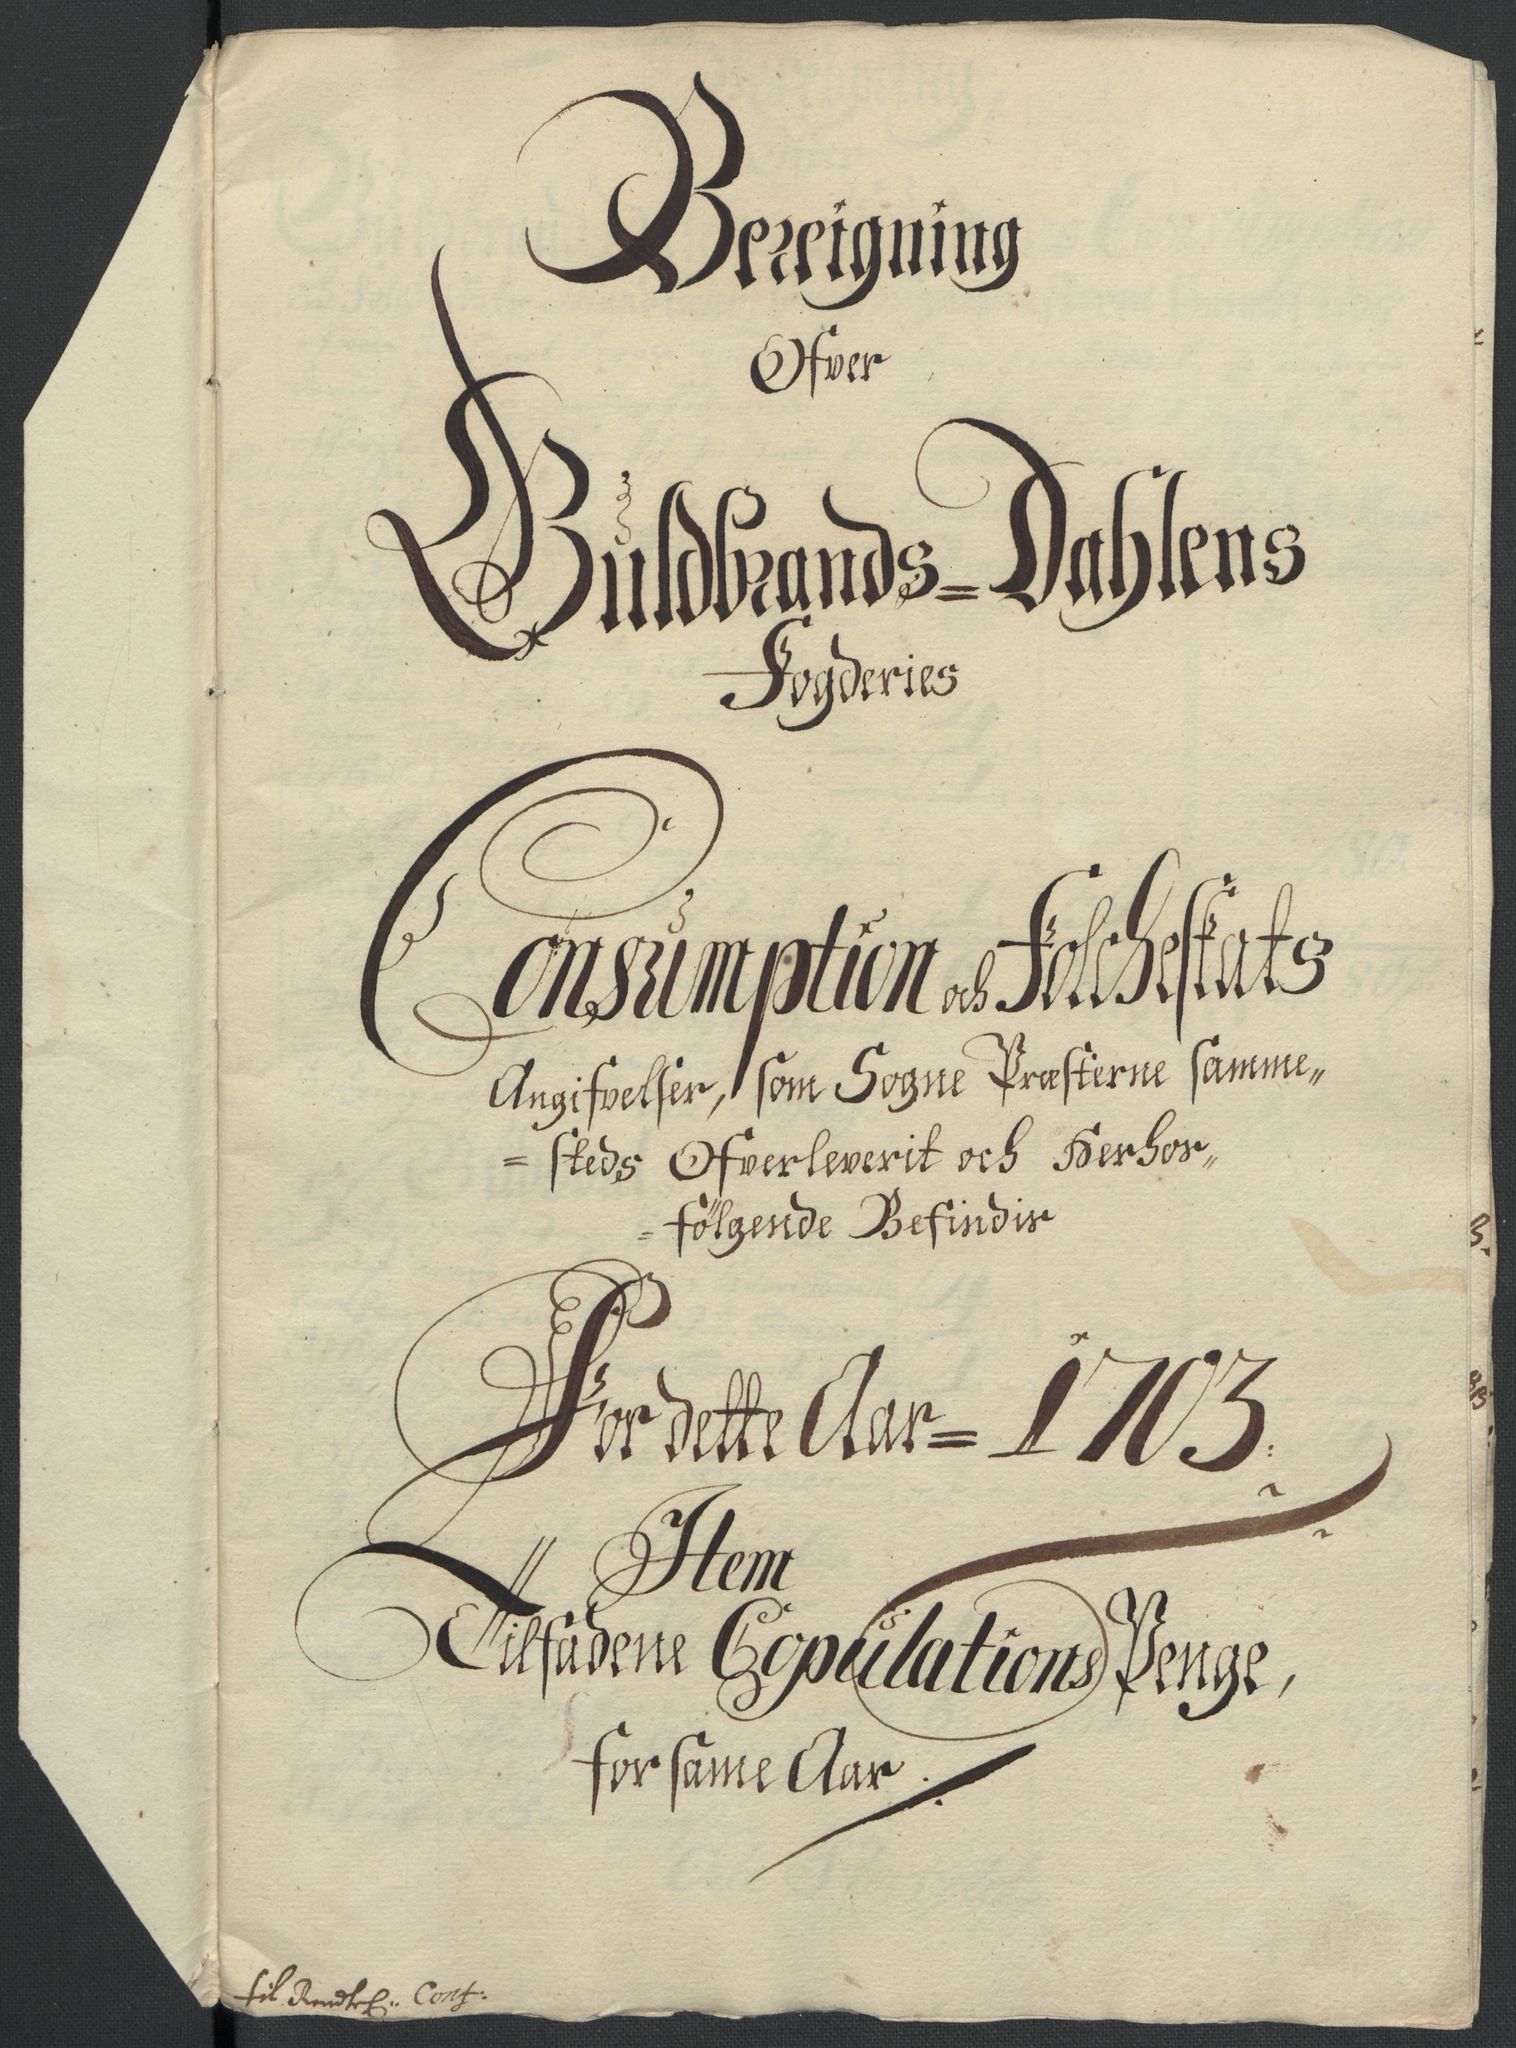 Bereigning
Ofver
Guldbrands= Dahlens
Fogderies
Consumption och Folcheskats
Angifvelser, som Sogne Præsterne samme„
= steds Ofverleverit och Herhos„
= følgende Befindis
For dette Aar= 1703.
Item
Tilfadene Copulations Penge,
for same Aar
til Rendtek: Cont: